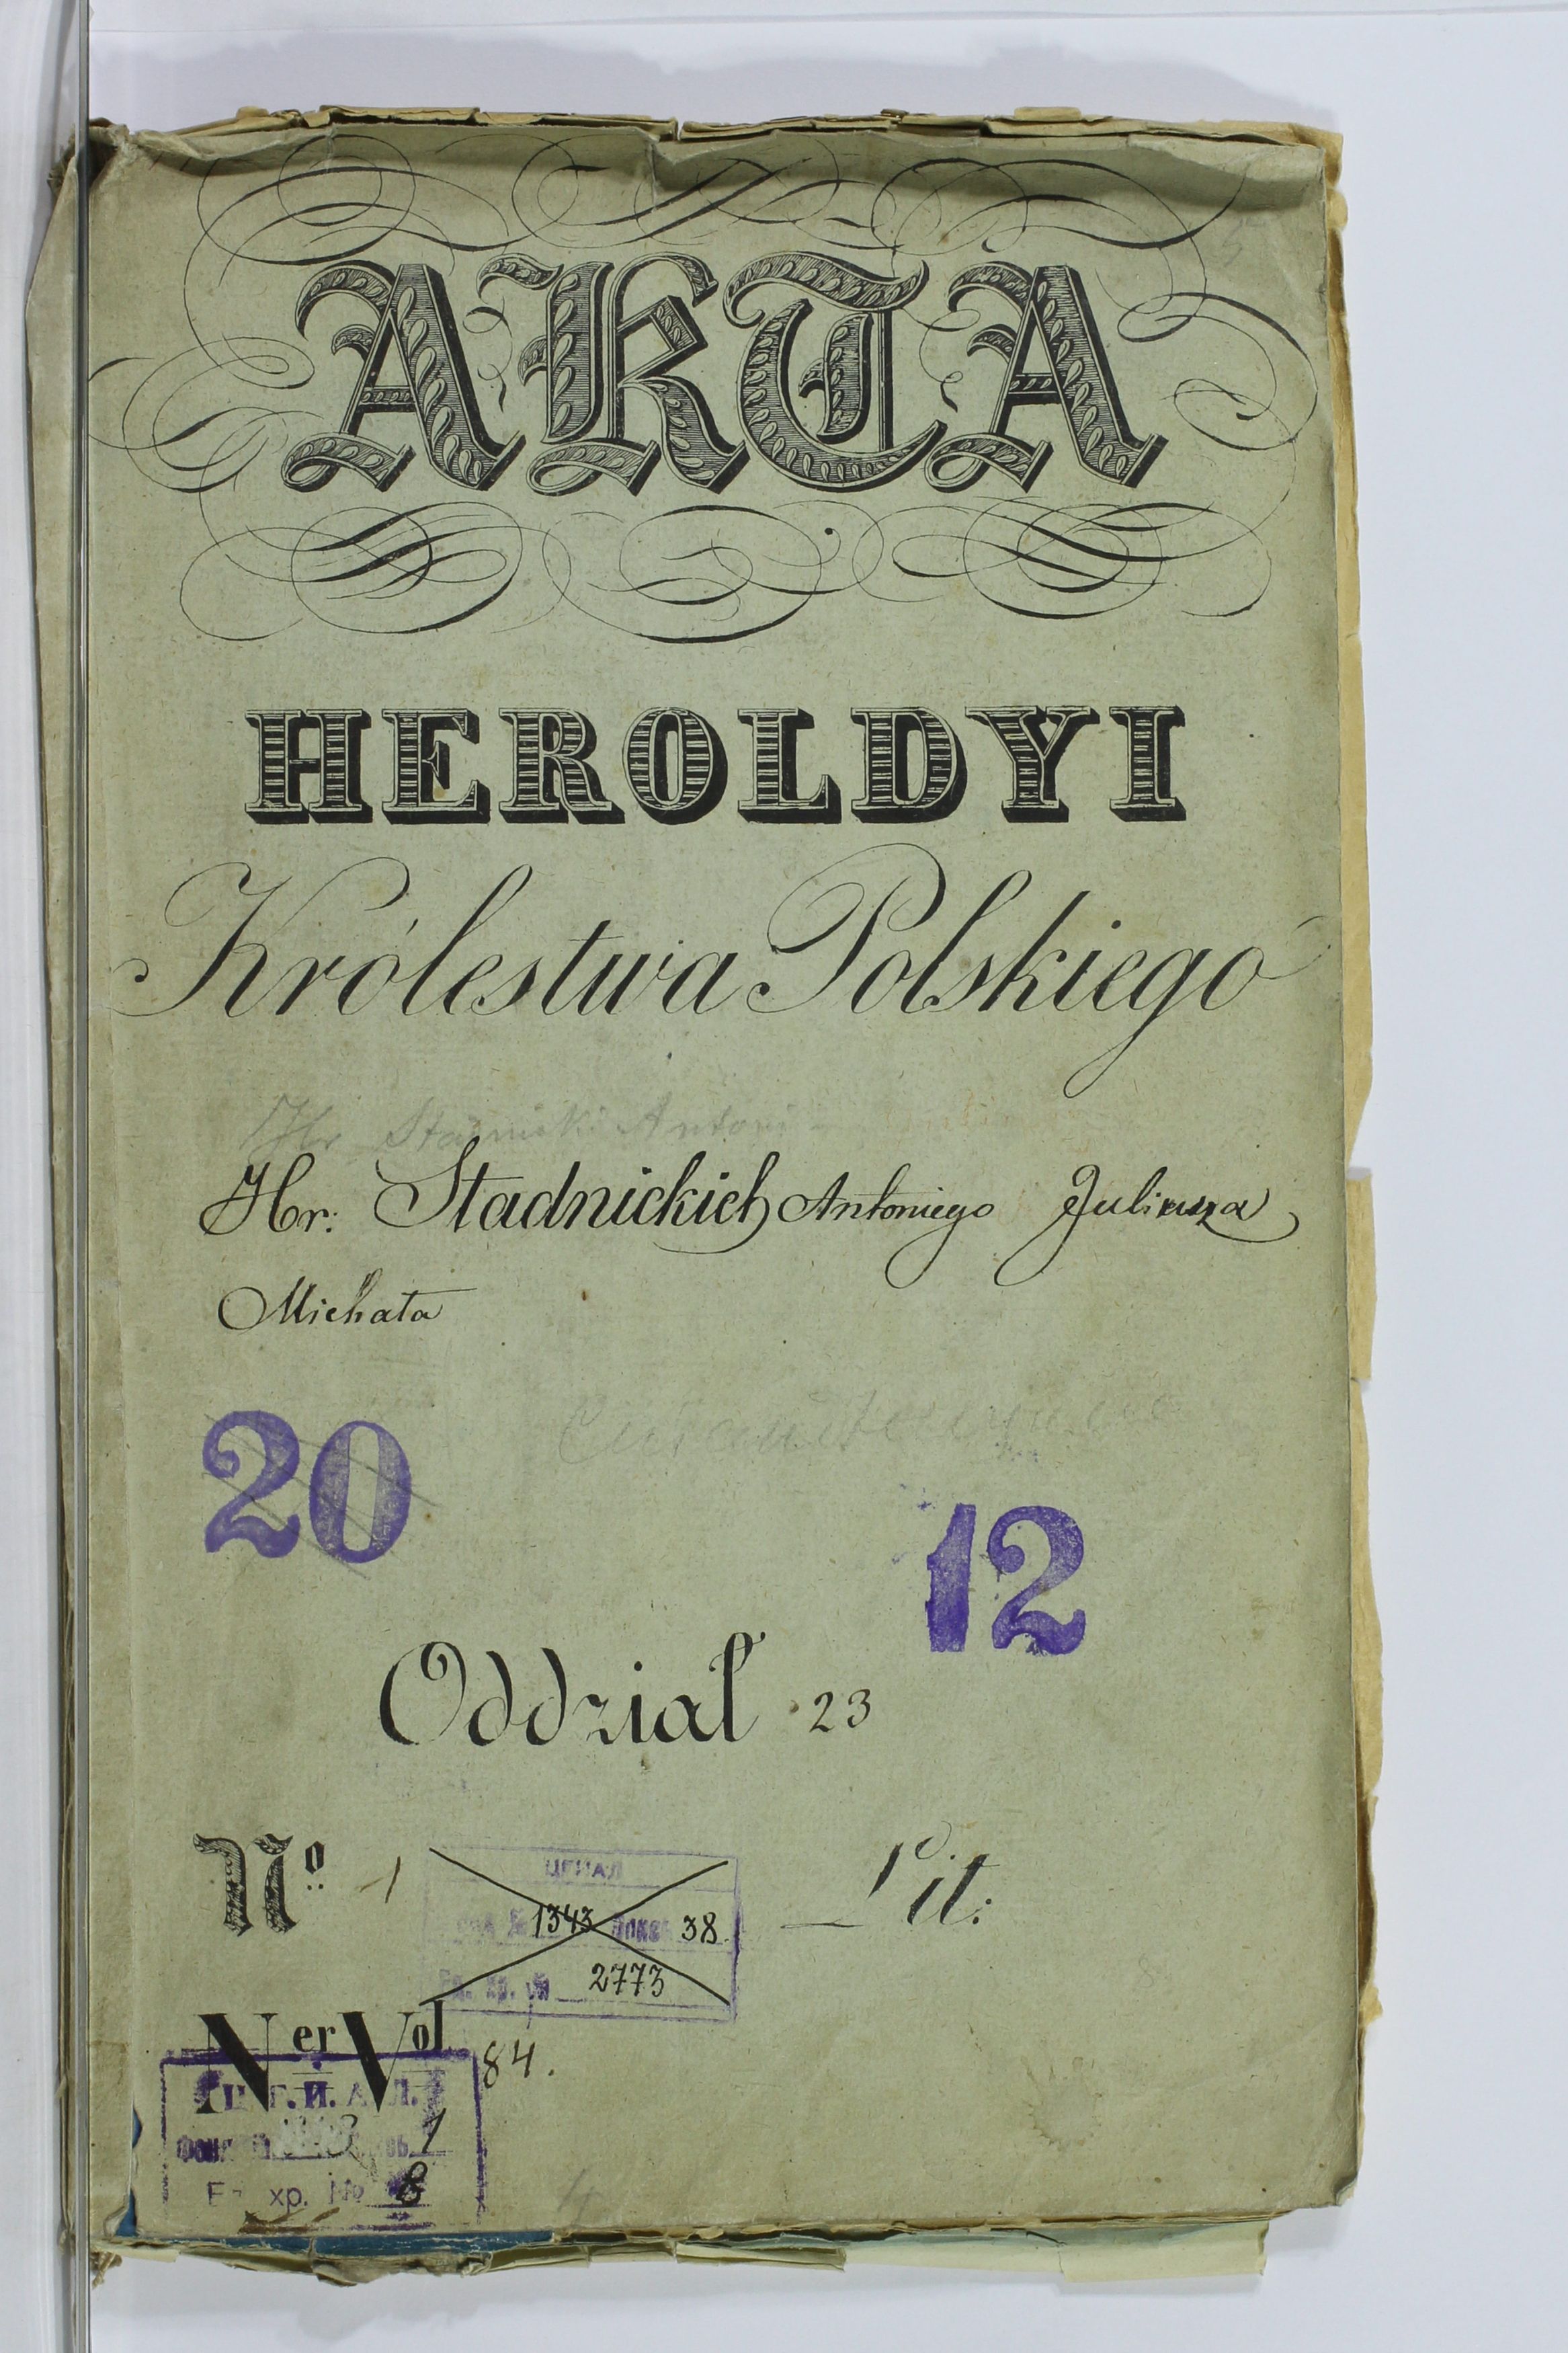 AKTA
HEROLDYI
Królestwa Polskiego
Hr. Stadnicki Antoni
Hr: Stadnickich Antoniego Juliusza
Michała
20
12
Oddział 23
No 1
Lit:
ЦГИАЛ
1343 38
хр. № 2773
Ner Vol 84.
Ц.Г.И.А.Л.
Фонд 1
Ед. хр. № 8